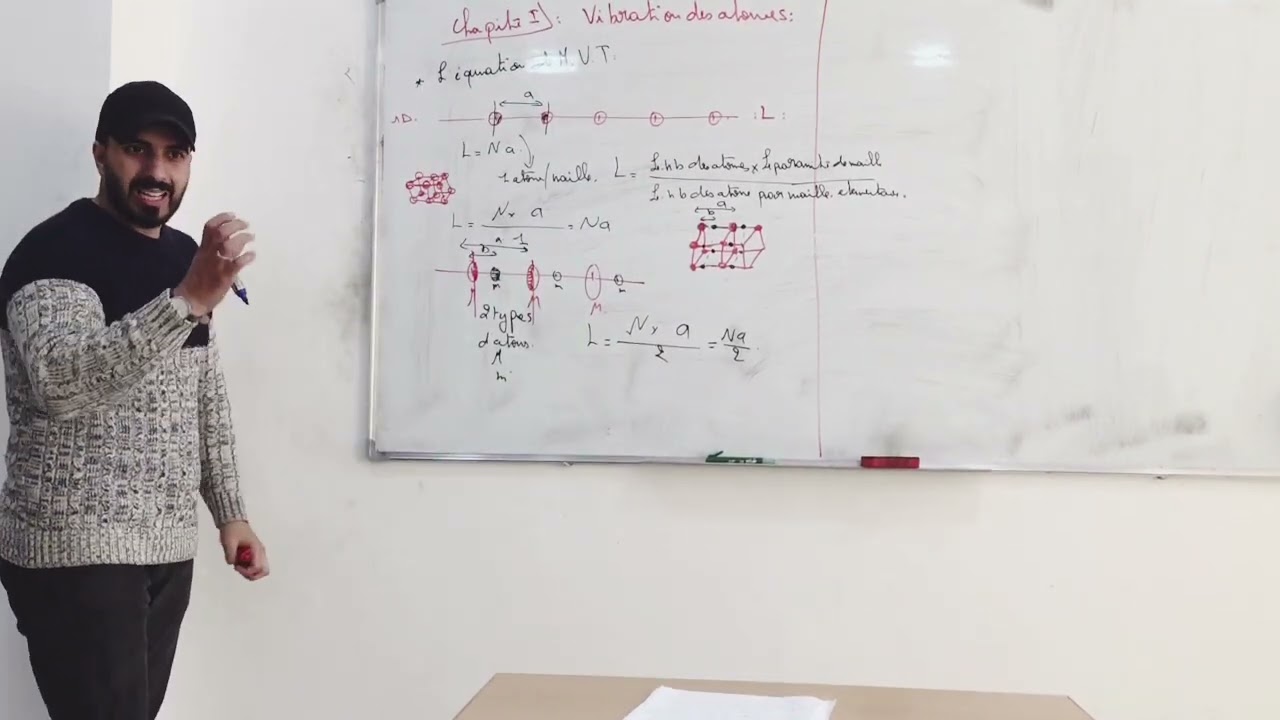 Chapitre I) : Vibration des atomes :
* L'équation d M.V.T :
a
1D. :L:
L = Na.
1 atome/maille. L = Le nb des atomes x Le paramètre de maill
Le nb des atome par maille elementaire.
L = N x a / 1 = Na
a
b
a
b
m m m
M M M
2 types
d'atoms.
M
m
L = N x a / 2 = Na / 2.